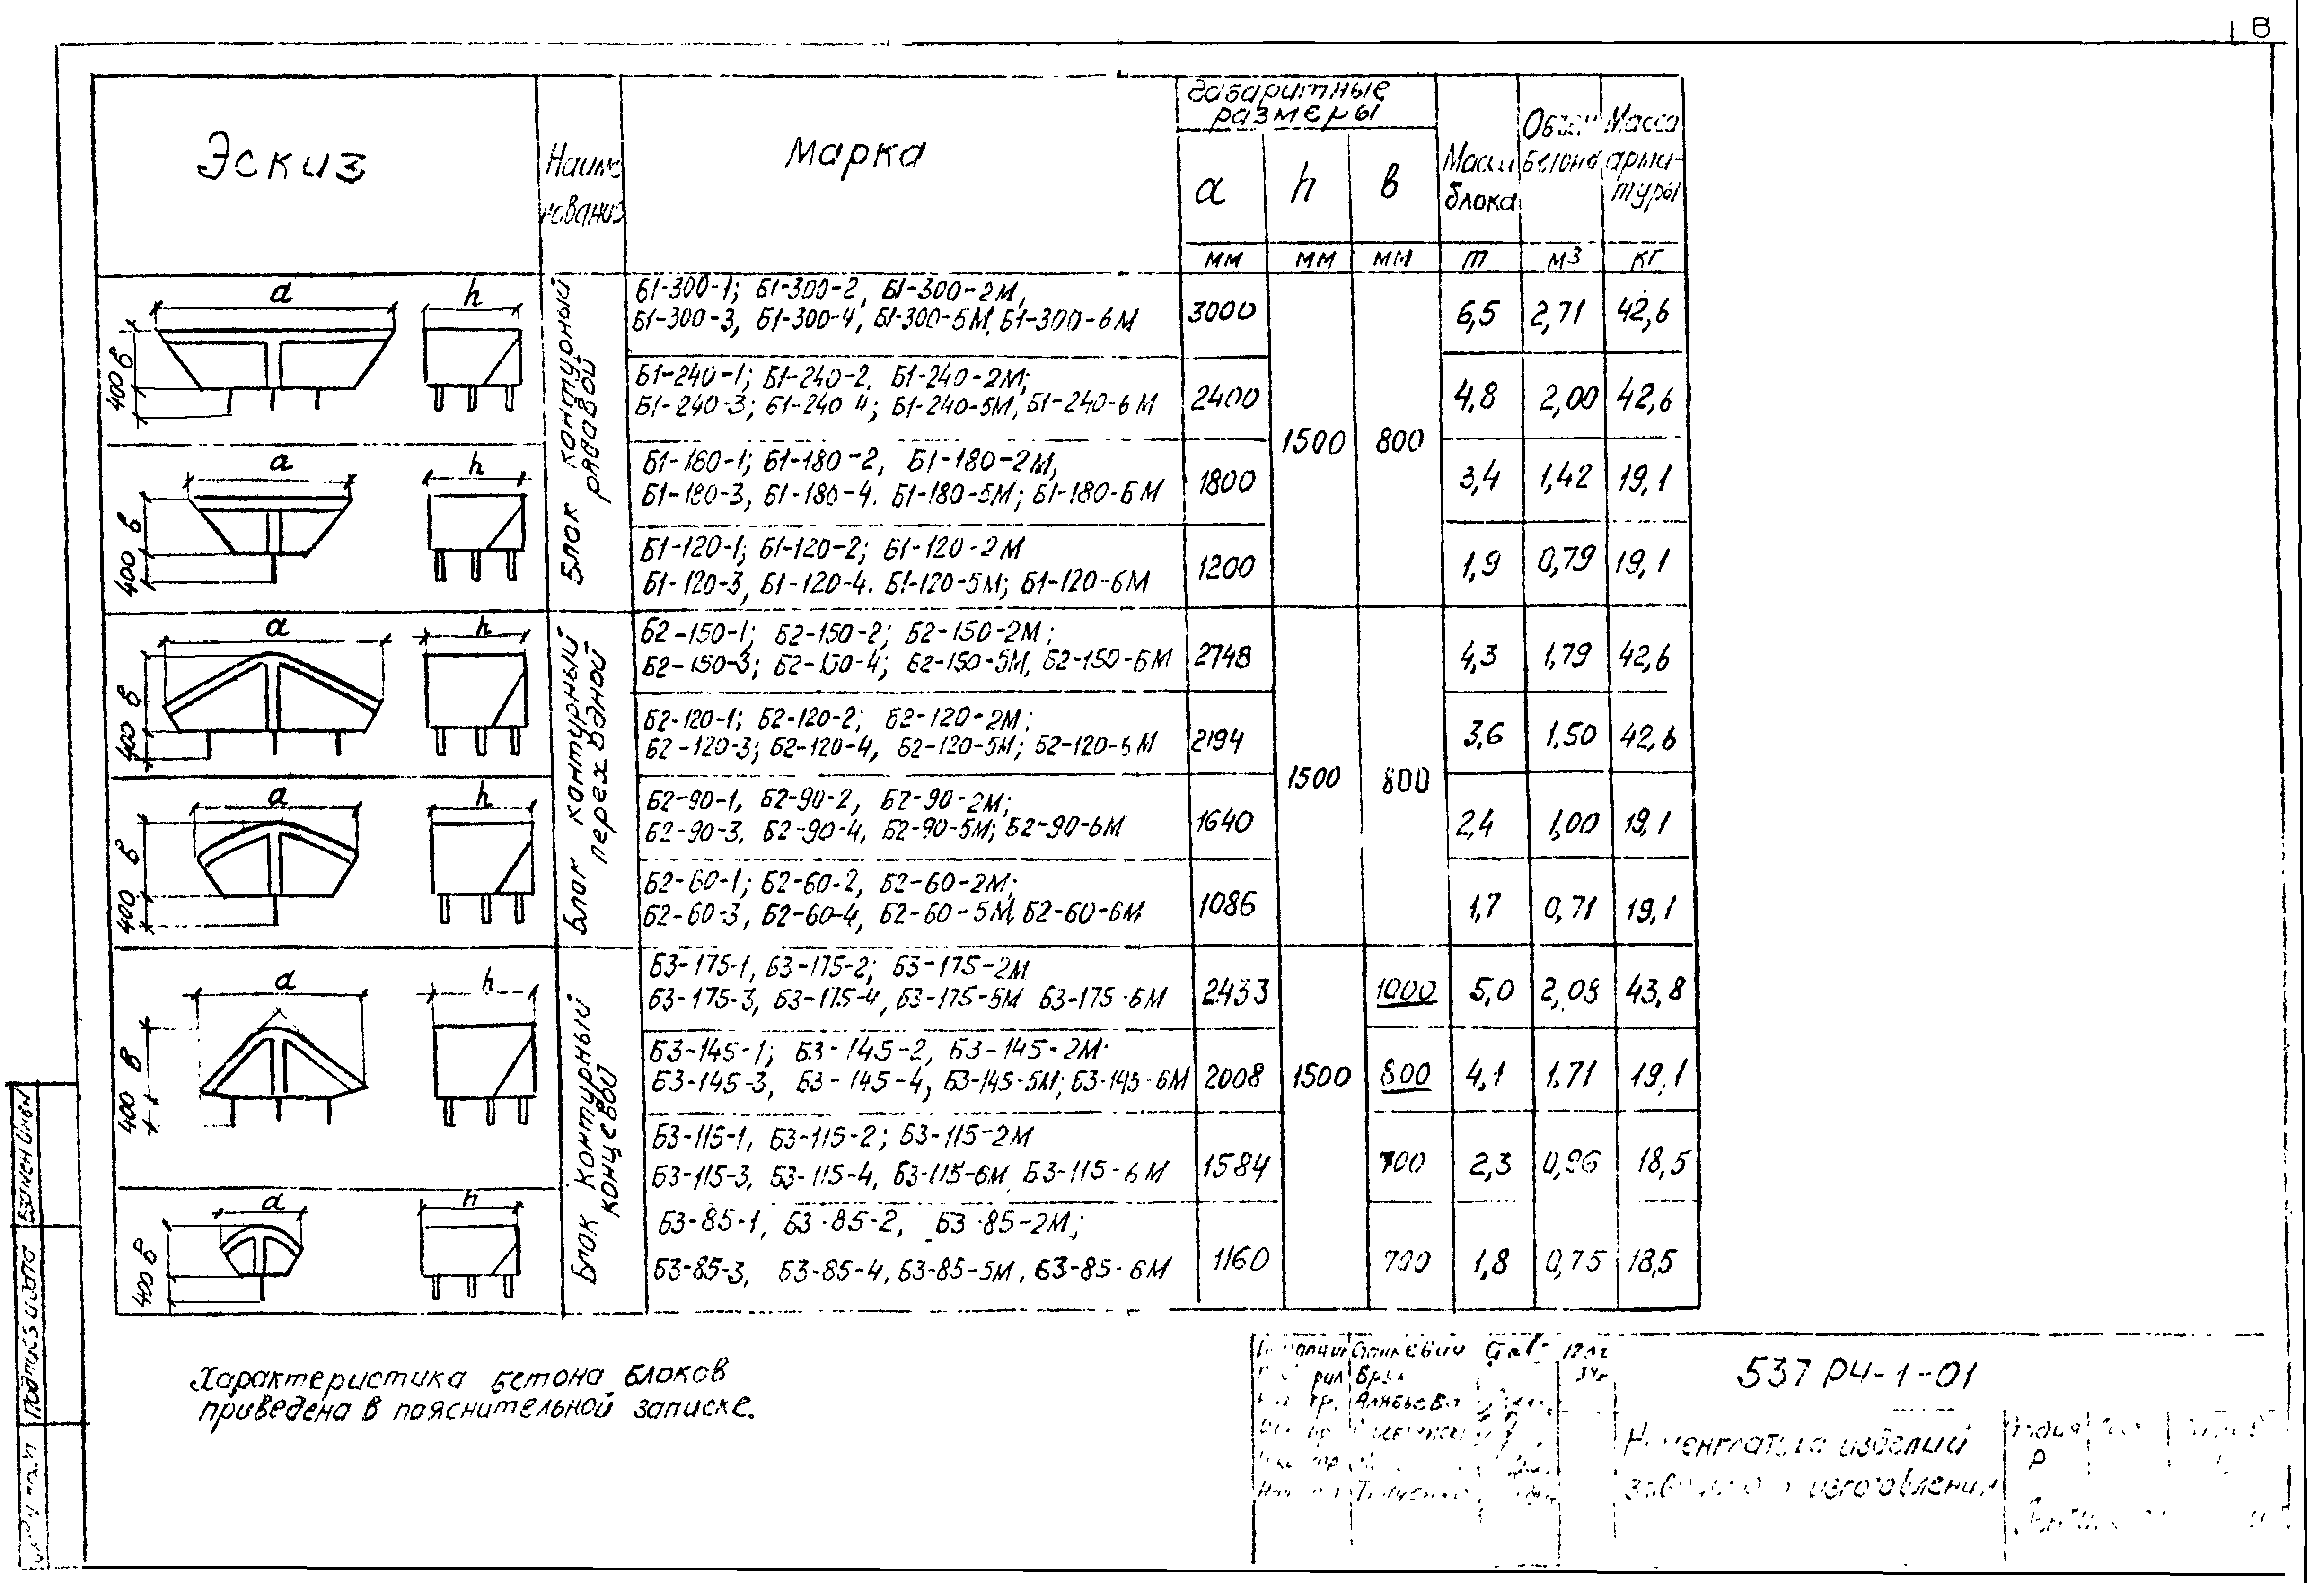 8
Эскиз
Наиме
нование
Марка
Габаритные
размеры
a
h
в
Масса
блока
Объем
бетона
Масса
арма-
туры
мм
мм
мм
т
м3
кг
Блок контурный
рядовой
a
h
400 в
Б1-300-1; Б1-300-2, Б1-300-2М,
Б1-300-3, Б1-300-4, Б1-300-5М, Б1-300-6М
3000
6,5
2,71
42,6
Б1-240-1; Б1-240-2, Б1-240-2М;
Б1-240-3; Б1-240 4; Б1-240-5М, Б1-240-6М
2400
4,8
2,00
42,6
1500
800
a
h
400 в
Б1-180-1; Б1-180-2, Б1-180-2М,
Б1-180-3, Б1-180-4. Б1-180-5М; Б1-180-6М
1800
3,4
1,42
19,1
Б1-120-1; Б1-120-2; Б1-120-2М
Б1-120-3, Б1-120-4. Б1-120-5М; Б1-120-6М
1200
1,9
0,79
19,1
Блок контурный
переходной
a
h
400 в
Б2-150-1; Б2-150-2; Б2-150-2М;
Б2-150-3; Б2-150-4; Б2-150-5М, Б2-150-6М
2748
4,3
1,79
42,6
Б2-120-1; Б2-120-2; Б2-120-2М;
Б2-120-3; Б2-120-4, Б2-120-5М; Б2-120-6М
2194
3,6
1,50
42,6
1500
800
a
h
400 в
Б2-90-1, Б2-90-2, Б2-90-2М;
Б2-90-3, Б2-90-4, Б2-90-5М; Б2-90-6М
1640
2,4
1,00
19,1
Б2-60-1; Б2-60-2, Б2-60-2М;
Б2-60-3, Б2-60-4, Б2-60-5М, Б2-60-6М
1086
1,7
0,71
19,1
Блок контурный
концевой
a
h
400 в
Б3-175-1, Б3-175-2; Б3-175-2М
Б3-175-3, Б3-175-4, Б3-175-5М Б3-175-6М
2433
1000
5,0
2,08
43,8
Б3-145-1; Б3-145-2, Б3-145-2М
Б3-145-3, Б3-145-4, Б3-145-5М; Б3-145-6М
2008
1500
800
4,1
1,71
19,1
Б3-115-1, Б3-115-2; Б3-115-2М
Б3-115-3, Б3-115-4, Б3-115-6М, Б3-115-6М
1584
700
2,3
0,96
18,5
a
h
400 в
Б3-85-1, Б3-85-2, Б3-85-2М;
Б3-85-3, Б3-85-4, Б3-85-5М, Б3-85-6М
1160
700
1,8
0,75
18,5
Характеристика бетона блоков
приведена в пояснительной записке.
537 РЧ-1-01
Номенклатура изделий
заводского изготовления
Р
Взамен инв№
Подпись и дата